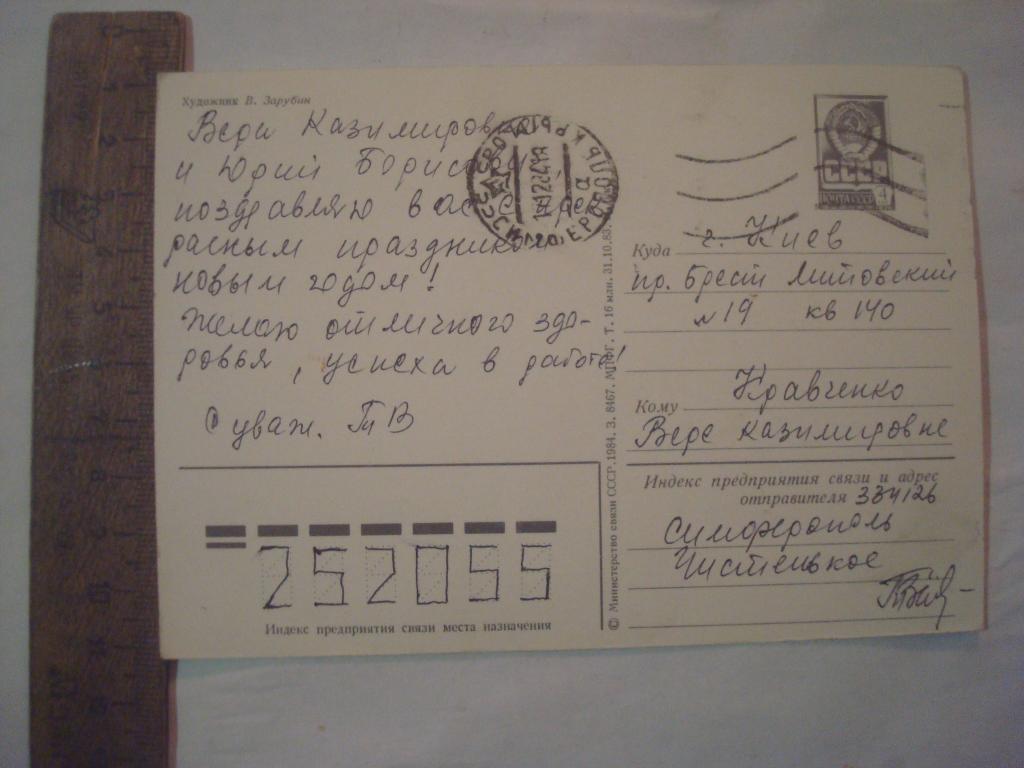 Художник В. Зарубин
Вера Казимировна
и Юрий Борис
поздравляю вас с прек
расным праздником
новым годом!
Желаю отличного здо-
ровья, успеха в работе!
С уваж. ТВ
СССР
ПОЧТА СССР
Куда г. Киев
пр. Брест Литовский
№ 19 кв 140
Кому Кравченко
Вере Казимировне
Индекс предприятия связи и адрес
отправителя 334126
Симферополь
Чистенькое
252055
Индекс предприятия связи места назначения
© Министерство связи СССР. 1984. З. 8467. МПФГ. Т. 16 млн. 31.10.83.